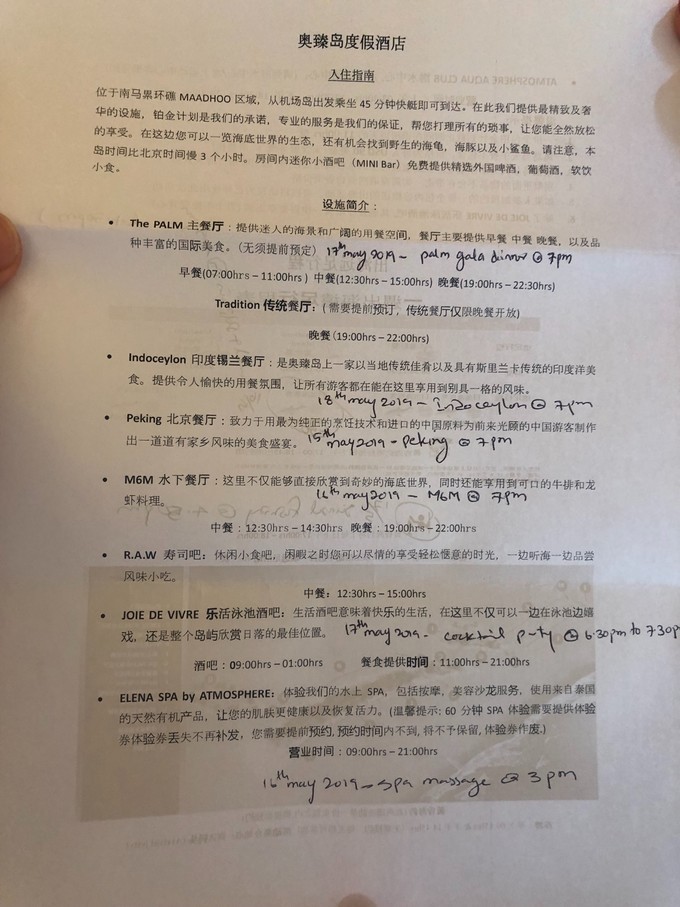 奥臻岛度假酒店
入住指南
位于南马累环礁 MAADHOO 区域，从机场岛出发乘坐 45 分钟快艇即可到达。在此我们提供最精致及奢
华的设施，铂金计划是我们的承诺，专业的服务是我们的保证，帮您打理所有的琐事，让您能全然放松
的享受。在这边您可以一览海底世界的生态，还有机会找到野生的海龟，海豚以及小鲨鱼。请注意，本
岛时间比北京时间慢 3 个小时。房间内迷你小酒吧（MINI Bar）免费提供精选外国啤酒，葡萄酒，软饮
小食。
设施简介：
• The PALM 主餐厅：提供迷人的海景和广阔的用餐空间，餐厅主要提供早餐 中餐 晚餐，以及品
种丰富的国际美食。（无须提前预定） 17th may 2019 - palm gala dinner @ 7pm
早餐(07:00hrs – 11:00hrs ) 中餐(12:30hrs – 15:00hrs) 晚餐(19:00hrs – 22:30hrs)
Tradition 传统餐厅：( 需要提前预订，传统餐厅仅限晚餐开放)
晚餐(19:00hrs – 22:00hrs)
• Indoceylon 印度锡兰餐厅：是奥臻岛上一家以当地传统佳肴以及具有斯里兰卡传统的印度洋美
食。提供令人愉快的用餐氛围，让所有游客都在能在这里享用到别具一格的风味。
18th may 2019 - indoceylon @ 7pm
• Peking 北京餐厅：致力于用最为纯正的烹饪技术和进口的中国原料为前来光顾的中国游客制作
出一道道有家乡风味的美食盛宴。 15th may 2019 - peking @ 7pm
• M6M 水下餐厅：这里不仅能够直接欣赏到奇妙的海底世界，同时还能享用到可口的牛排和龙
虾料理。 16th may 2019 - M6M @ 7pm
中餐：12:30hrs – 14:30hrs 晚餐：19:00hrs – 22:00hrs
• R.A.W 寿司吧：休闲小食吧，闲暇之时您可以尽情的享受轻松惬意的时光，一边听海一边品尝
风味小吃。
中餐：12:30hrs – 15:00hrs
• JOIE DE VIVRE 乐活泳池酒吧：生活酒吧意味着快乐的生活，在这里不仅可以一边在泳池边嬉
戏，还是整个岛屿欣赏日落的最佳位置。 17th may 2019 - cocktail party @ 6:30pm to 7:30p
酒吧：09:00hrs – 01:00hrs 餐食提供时间：11:00hrs – 21:00hrs
• ELENA SPA by ATMOSPHERE：体验我们的水上 SPA，包括按摩，美容沙龙服务，使用来自泰国
的天然有机产品，让您的肌肤更健康以及恢复活力。（温馨提示: 60 分钟 SPA 体验需要提供体验
券体验券丢失不再补发，您需要提前预约, 预约时间内不到, 将不予保留, 体验券作废.）
营业时间：09:00hrs – 21:00hrs
16th may 2019 - spa massage @ 3 pm